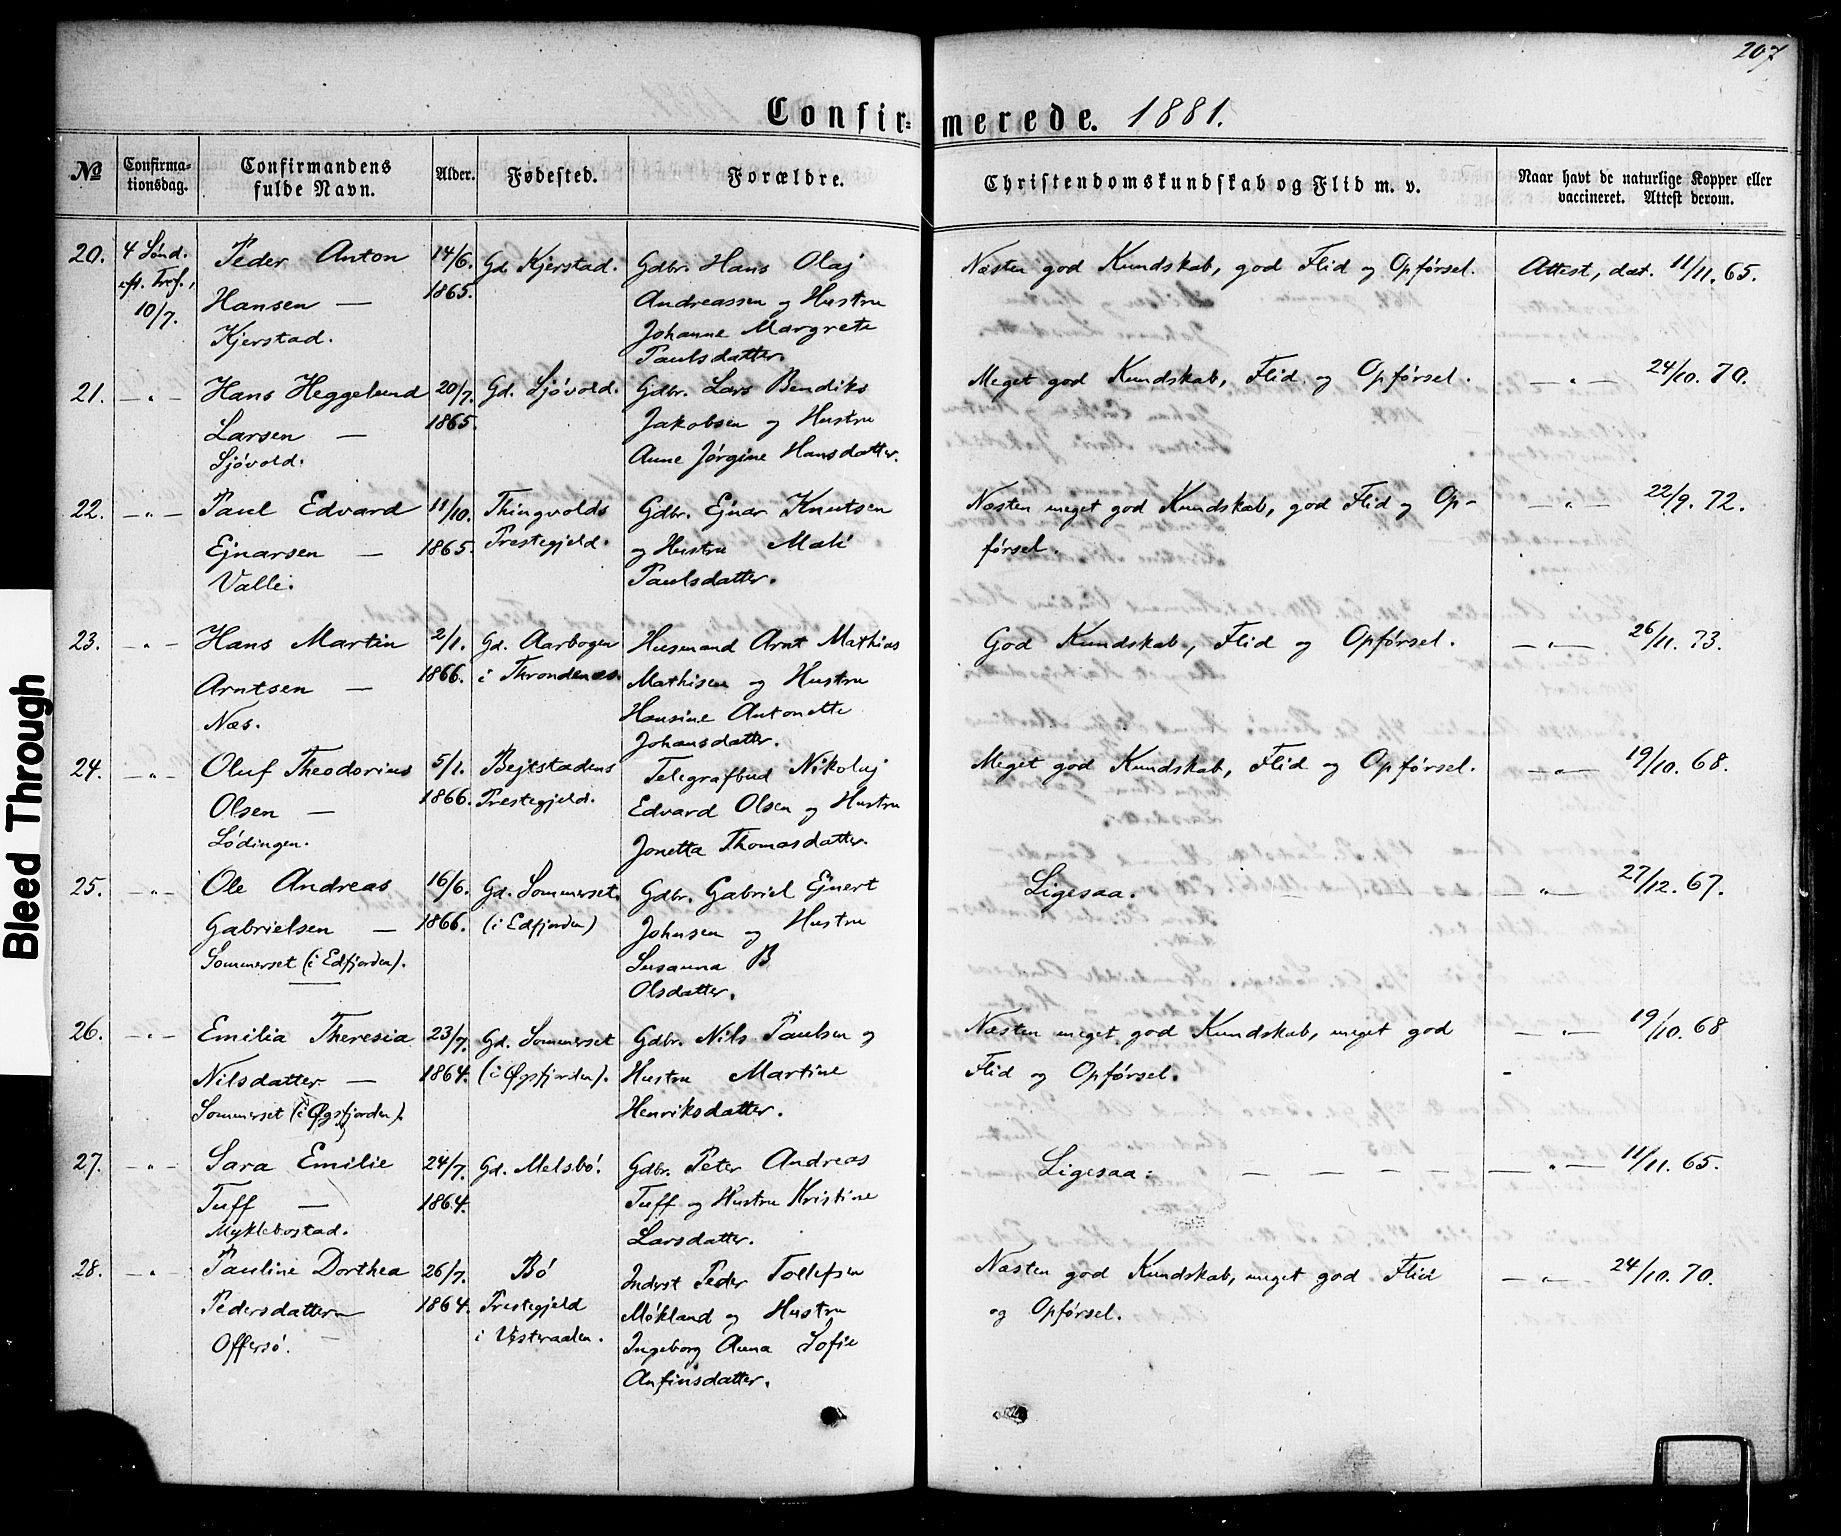 207
Confir- merede. 1881.
No Confirma-tionsdag. Confirmandens fulde Navn. Alder. Fødested. Forældre. Christendomskundskab og Flid m. v. Naar havt de naturlige Kopper eller vaccineret. Attest derom.
20. 4 Sönd. Peder Anton 14/6. Gd. Kjerstad. Gdbr. Hans Olaj Næsten god Kundskab, god Flid og Opförsel. Attest, dat. 11/11. 65.
eft. Tref., Hansen — 1865. Andreassen og Hustru
10/7. Kjerstad. Johanne Margrete
Paulsdatter.
21. — " — Hans Heggelund 20/7. Gd. Sjövold. Gdbr. Lars Bendiks Meget god Kundskab, Flid og Opförsel. — " — 24/10. 70.
Larsen — 1865. Jakobsen og Hustru
Sjövold. Anne Jörgine Hansdatter.
22. — " — Paul Edvard 11/10. Thingvolds Gdbr. Ejnar Knutsen Næsten meget god Kundskab, god Flid og Op- — " — 22/9. 72.
Ejnarsen — 1865. Prestegjeld. og Hustru Mali försel.
Valle. Paulsdatter.
23. — " — Hans Martin 2/1. Gd. Aarbogen Husmand Arnt Mathias God Kundskab, Flid og Opförsel. — " — 26/11. 73.
Arntsen — 1866. i Throndenæs. Mathisen og Hustru
Næs. Hansine Antonette
Johansdatter.
24. — " — Oluf Theodorius 5/1. Bejtstadens Telegrafbud Nikolaj Meget god Kundskab, Flid og Opförsel. — " — 19/10. 68.
Olsen — 1866. Prestegjeld. Edvard Olsen og Hustru
Lödingen. Jonetta Thomasdatter.
25. — " — Ole Andreas 16/6. Gd. Sommerset. Gdbr. Gabriel Ejnert Ligesaa. — — " — 27/12. 67.
Gabrielsen — 1866. (i Edfjorden) Johnsen og Hustru
Sommerset (i Edfjorden). Susanna B
Olsdatter.
26. — " — Emilia Theresia 23/7. Gd. Sommerset Gdbr. Nils Paulsen og Næsten meget god Kundskab, meget god — " — 19/10. 68
Nilsdatter — 1864. (i Øgsfjorden). Hustru Martine Flid og Opförsel.
Sommerset (i Øgsfjorden). Henriksdatter.
27. — " — Sara Emilie 24/7. Gd. Melsbö. Gdbr. Peter Andreas Ligesaa: — — — — — " — 11/11. 65.
Tuff — 1864. Tuff og Hustru Kristine
Myklebostad. Larsdatter.
28. — " — Pauline Dorthea 26/7. Bö Inderst Peder Tollefsen Næsten god Kundskab, meget god Flid — " — 24/10. 70.
Pedersdatter — 1864. Prestegjeld Mökland og Hustru og Opförsel.
Offersö. i Vesteraalen. Ingeborg Anna Sofie
Anfinsdatter.
Bleed Through